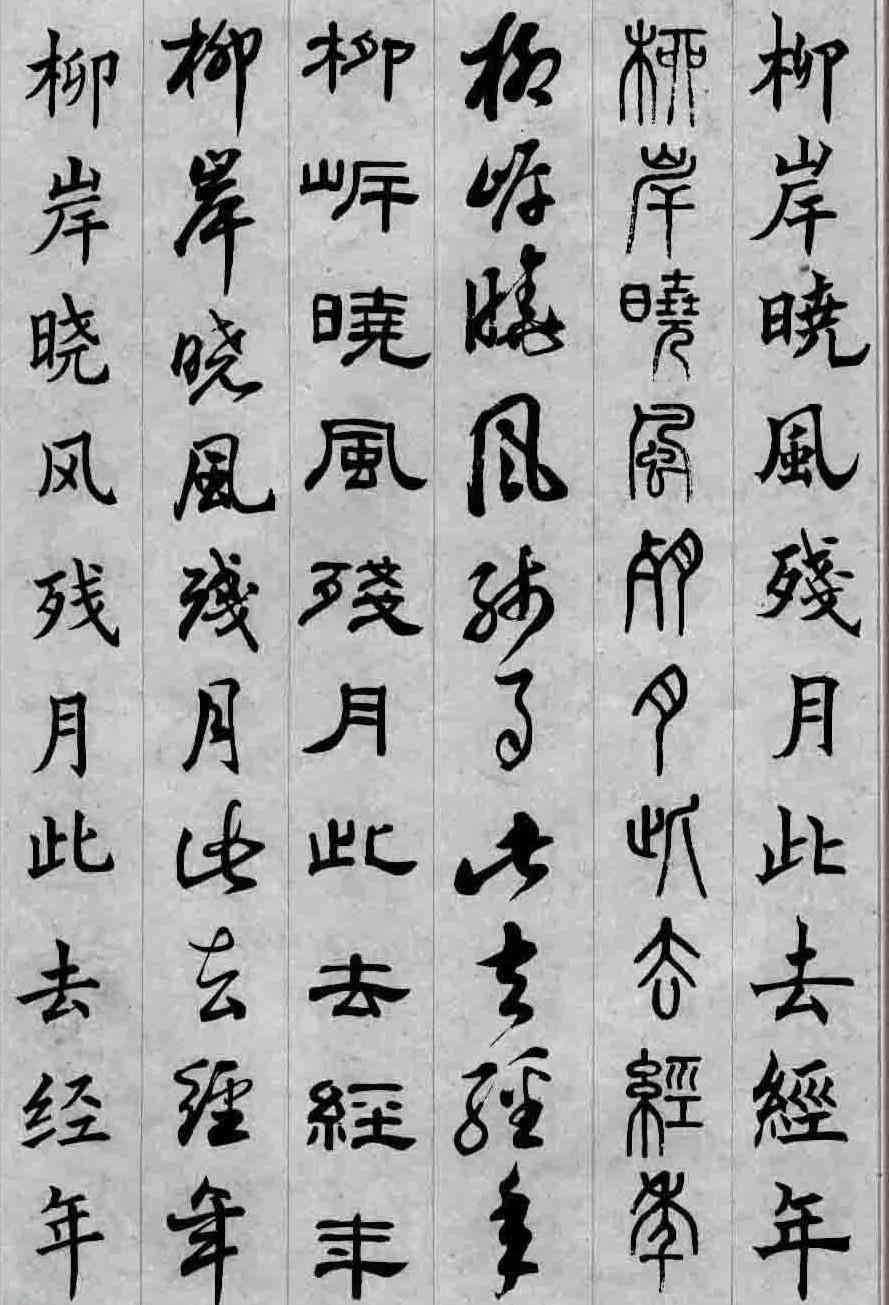 柳岸曉風殘月此去經年
柳岸曉風殘月此去經年
柳岸曉風殘月此去經年
柳岸曉風殘月此去經年
柳岸晓風殘月此去經年
柳岸晓风残月此去经年